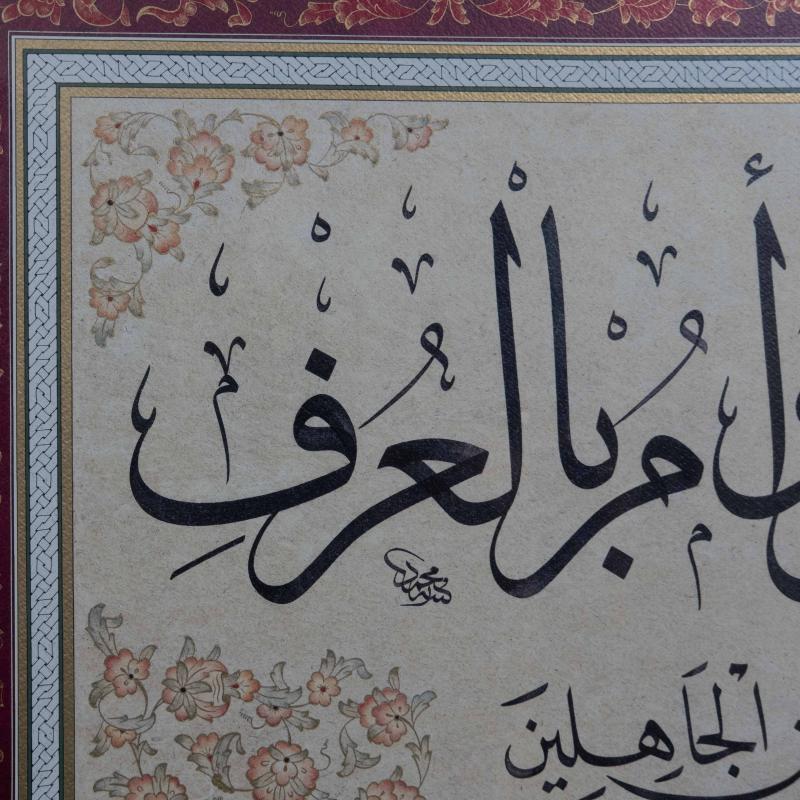 وأمر بالعرف
الْجَاهِلِينَ